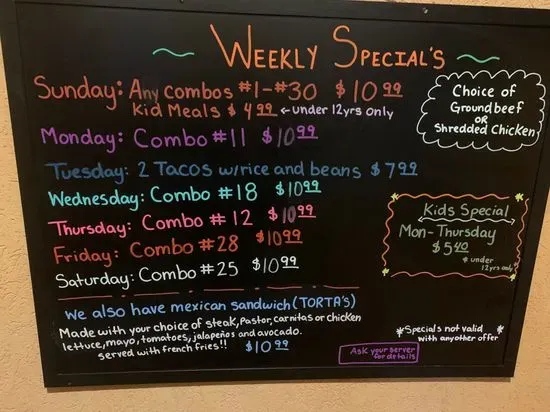 Weekly Special's
Sunday: Any combos #1-#30 $10.99
Kid Meals $4.99 ←under 12yrs only
Choice of
Ground beef
OR
Shredded Chicken
Monday: Combo #11 $10.99
Tuesday: 2 Tacos w/rice and beans $7.99
Wednesday: Combo #18 $10.99
Thursday: Combo #12 $10.99
Friday: Combo #28 $10.99
Saturday: Combo #25 $10.99
Kids Special
Mon-Thursday
$5.40
* under
12yrs only
We also have mexican sandwich (TORTA'S)
Made with your choice of steak, Pastor, carnitas or chicken
lettuce, mayo, tomatoes, jalapeños and avocado.
served with french fries!! $10.99
*Specials not valid *
with any other offer
Ask your server
for details